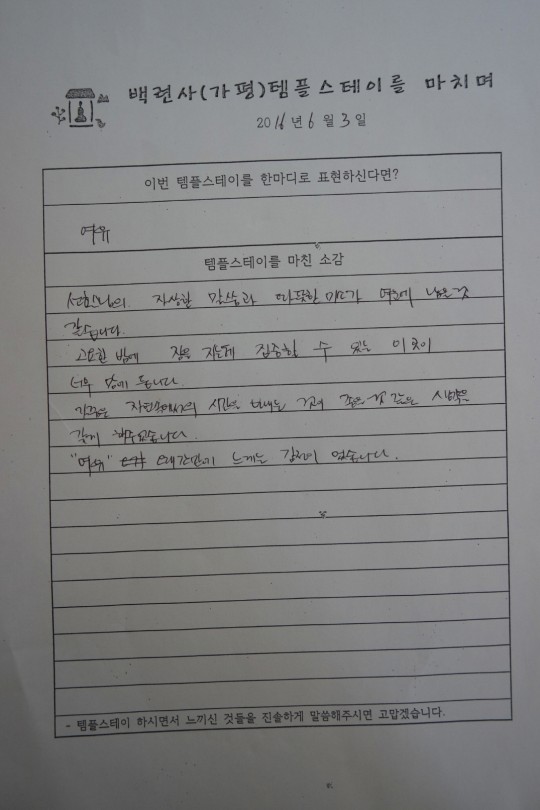 백련사(가평)템플스테이를 마치며
2016년 6월 3일
이번 템플스테이를 한마디로 표현하신다면?
여유
템플스테이를 마친 소감
자상한 말씀과 따뜻한 미소가 남는 것
같습니다.
고요한 밤에 잠을 자는데 집중할 수 있는 이 곳이
너무 맘에 듭니다.
가끔은 시간을 보내는 것도 좋은 것 같은 생각을
하게 해주었습니다.
"여유" 오래간만에 느끼는 감정이 었습니다.
- 템플스테이 하시면서 느끼신 것들을 진솔하게 말씀해주시면 고맙겠습니다.